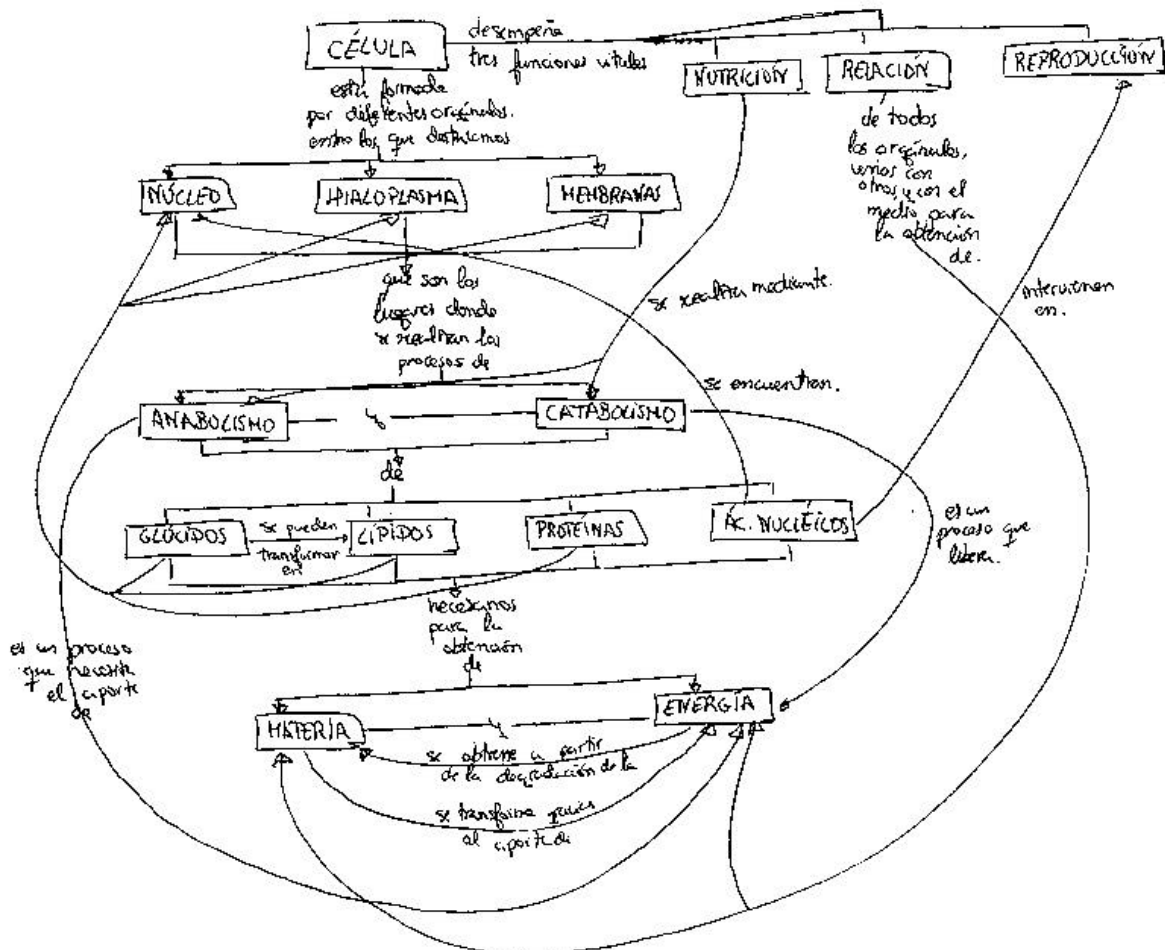 CÉLULA
desempeña
tres funciones vitales
NUTRICIÓN
RELACIÓN
REPRODUCCIÓN
está formada
por diferentes orgánulos,
entre los que destacamos
de todos
los orgánulos,
unos con
otros, y con el
medio para
la obtención
de.
NÚCLEO
HIALOPLASMA
MEMBRANAS
que son los
lugares donde
se realizan los
procesos de
se realiza mediante.
intervienen
en.
se encuentran.
ANABOLISMO
y
CATABOLISMO
de
GLÚCIDOS
se pueden
transformar
en
LÍPIDOS
PROTEÍNAS
ÁC. NUCLÉICOS
es un
proceso que
libera.
necesarios
para la
obtención
de
es un proceso
que necesita
el aporte
de
MATERIA
y
ENERGÍA
se obtiene a partir
de la degradación de la
se transforma gracias
al aporte de